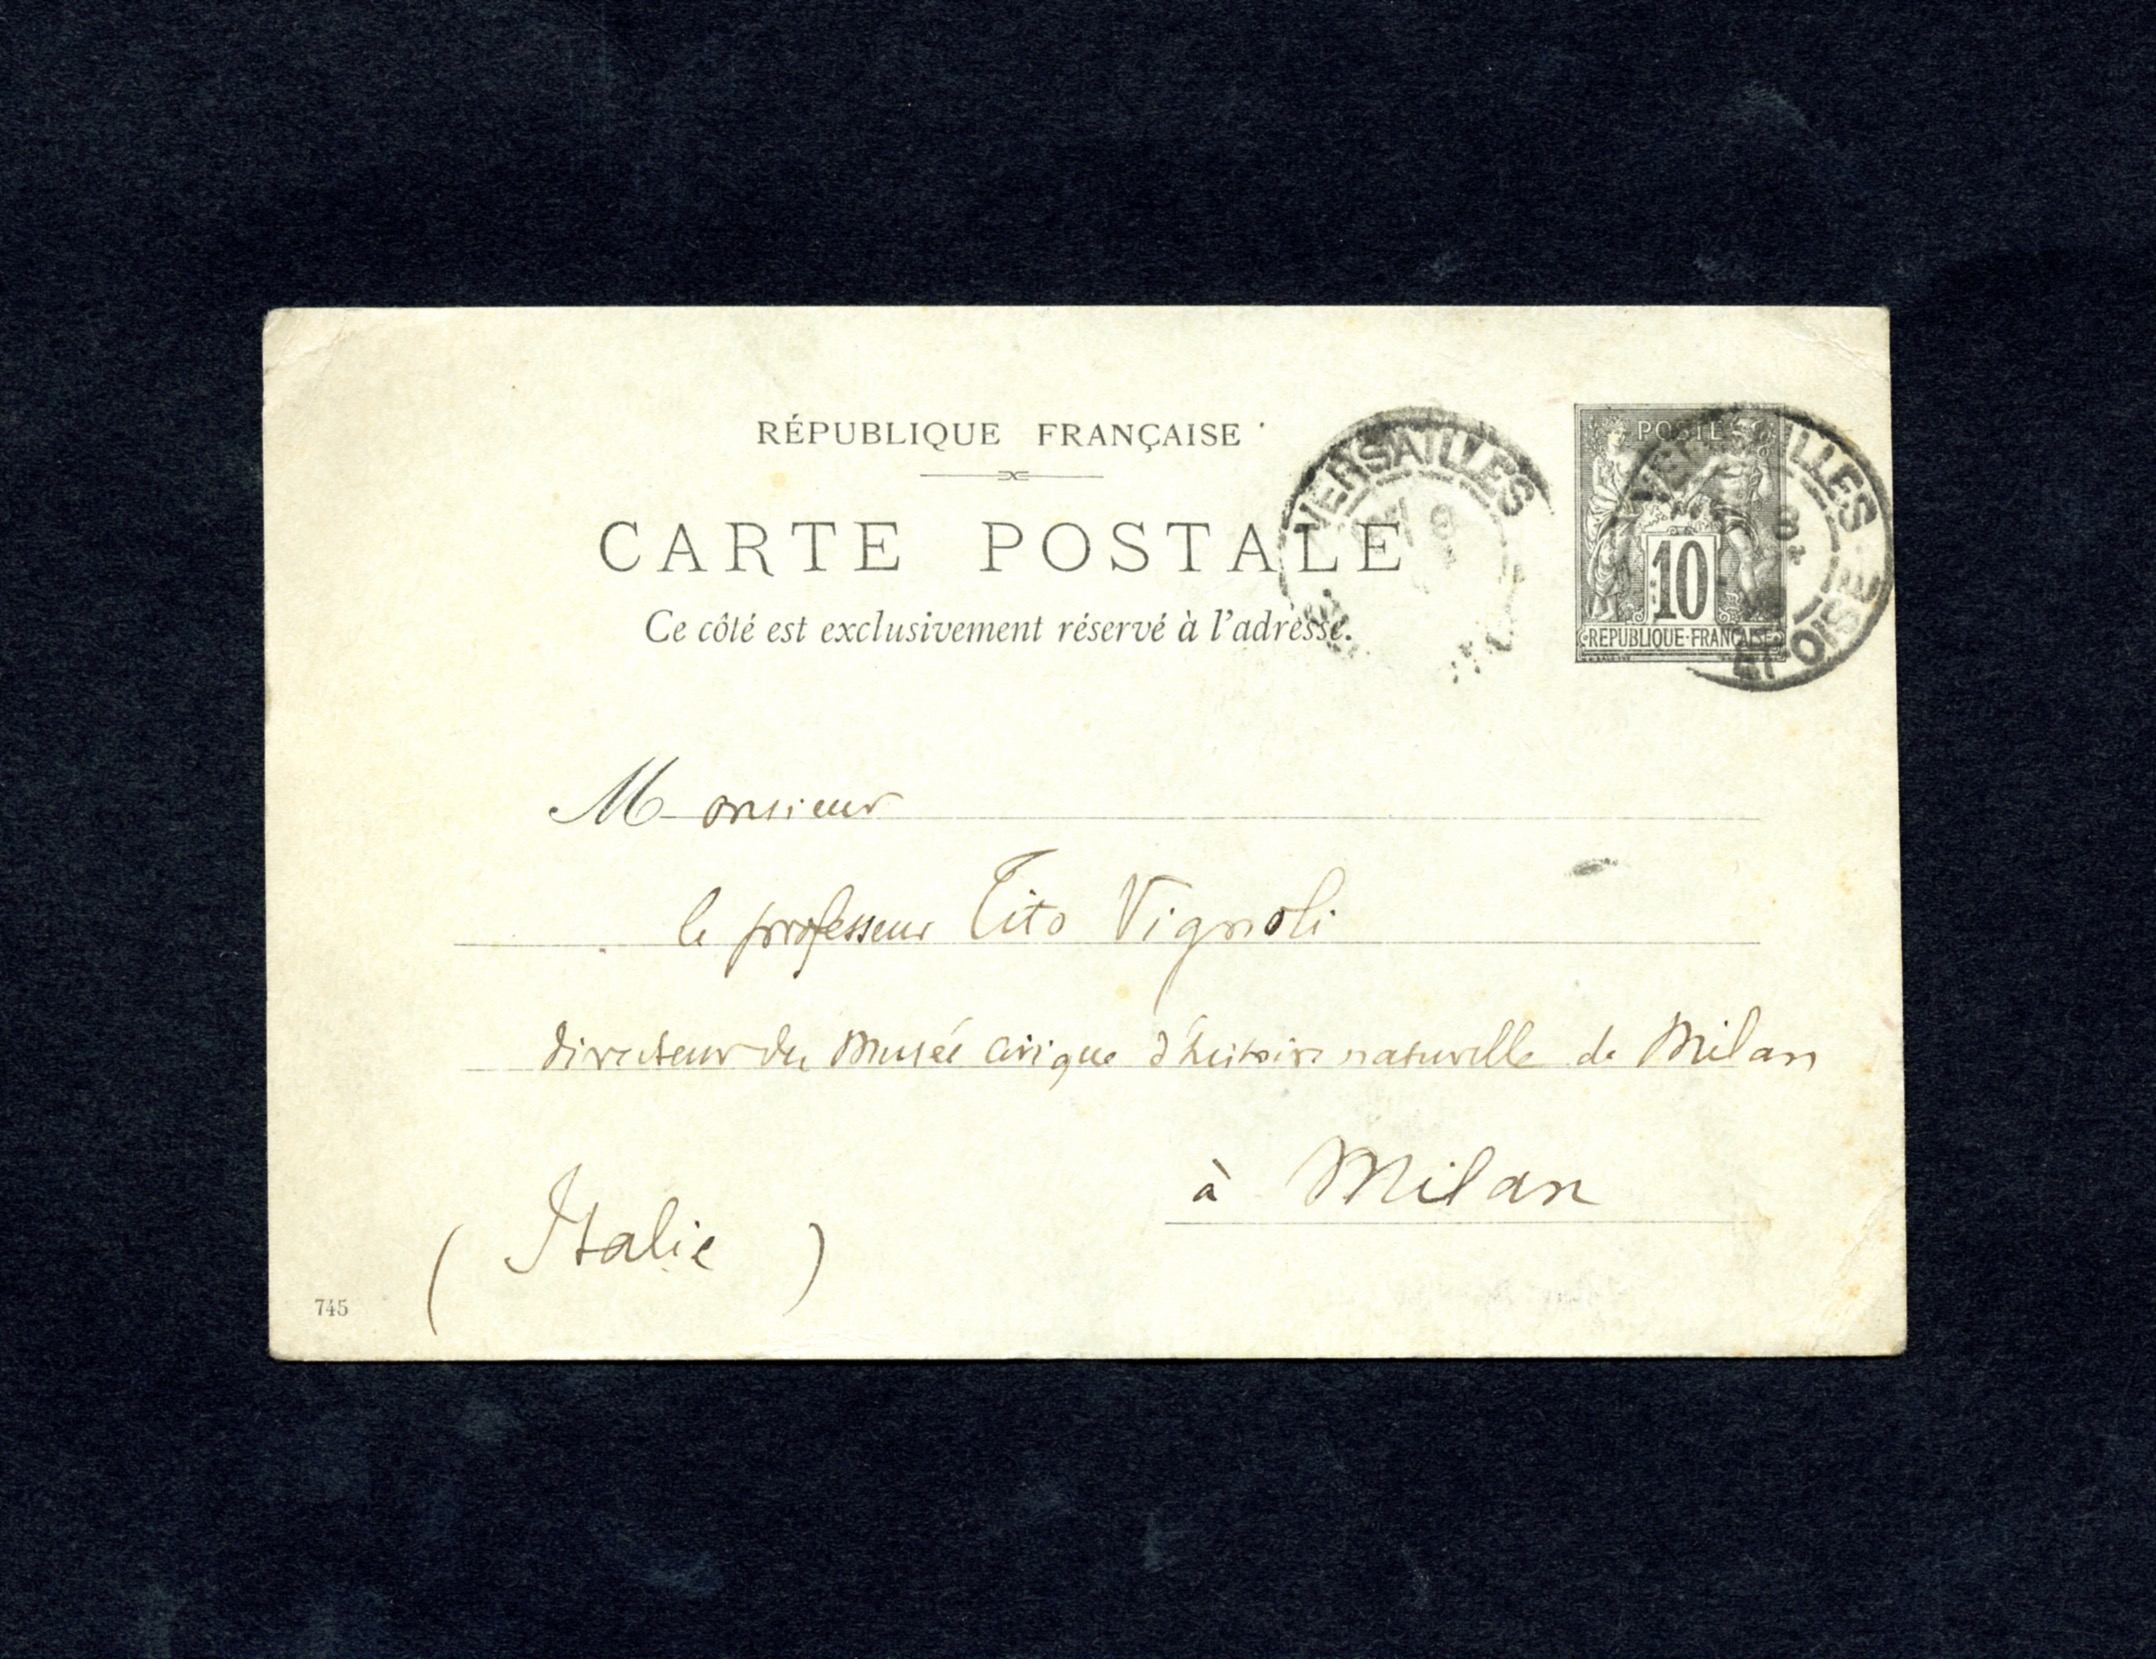 RÉPUBLIQUE FRANÇAISE
CARTE POSTALE
Ce côté est exclusivement réservé à l'adresse.
VERSAILLES
POSTE
10
RÉPUBLIQUE-FRANÇAISE
VERSAILLES
ET OISE
Monsieur
le professeur Tito Vignoli
directeur du Musée civique d'histoire naturelle de Milan
à Milan
( Italie )
745